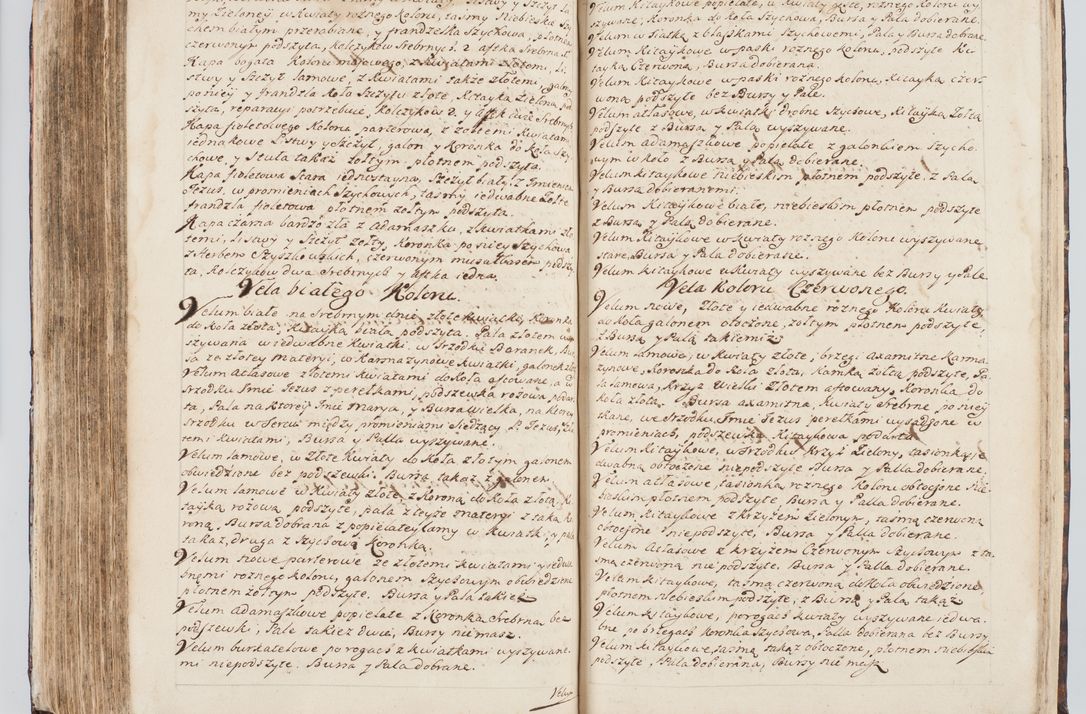 my Zieloney, w Kwiaty roznego Koloru, tasmy Niebieskie
chem białym przerabiane, y frandzelka Szychowa, płotnem
czerwonym podszyta, kolczykow Srebrnych 2. aftka Srebrna
Kapa bogata Koloru majowego, z Kwiatami złotemi, Li-
stwy y Szczyt lamowe, z Kwiatami także złotemi, galon
poniey y frandzla koło Szczytu złote, Kitayka Zielona pod
szyta, reparacyi potrzebuie, Kolczykow 2. y aftki dwie Srebrnych
Kapa fioletowego Koloru parterowa, z zotemi Kwiatami
iednakowe Listwy y Szczyt, galon y Koronka do koła Szy-
chowe, y Stuła takaż żołtym płotnem podszyta.
Kapa fioletowa Stara iednostayna, Szczyt biały z Imieniem
Jezus, w promieniach Szychowych, tasmy iedwabne żołte
frandzla fioletowa płotnem żołtym podszyta.
Kapa czarna bardzo zła z adamaszku, z kwiatkami zło-
temi, Listwy y Szczyt żołty, Koronka poniey Szychowa
z Herbem Czyszkowskich, czerwonym musułbasem podszy-
ta, Kolczykow dwa Srebrnych y aftka iedna.
Vela białego Koloru.
Velum białe na Srebrnym dnie złote kwiatki, Koronka
do koła złota, Kitayka biała podszyta. Pala złotem wy-
szywana w iedwabne Kwiatki, w Srzodku Baranek, Bur-
sa ze złotey materyi, w Karmazynowe Kwiatki, galonek
Velum Atłasowe złotemi kwiatami do koła aftowane, a w
Srzodku Imie Jezus z perełkami, podszewka rożowa podar-
ta, Pala na ktorey Imie Marya, y Bursa wielka, na ktorey
srzodku w Sercu między promieniami Siedzący P. Jezus,
temi kwiatami, Bursa y Palla wyszywane.
Velum lamowe, w złote Kwiaty do koła złotym galonem
obwiedzione bez podszewki. Bursa takaż z galonem.
Velum lamowe w Kwiaty złote, z Koroną do koła złotą, Ki-
tayką rożową podszyte, pala z teyże materyi z taką ko-
roną, Bursa dobrana z popielatey lamy w kwiatki, y pala
takaż, druga z Szychową Koronką.
Velum nowe parterowe ze złotemi kwiatami y iedwa-
bnemi roznego koloru, galonem Szychowym obwiedzione
płotnem żołtym podszyte. Bursa y Pala takież
Velum Adamaszkowe popielate z Koronka Srebrna bez
podszewki, Pale takiez dwie, Bursy nie masz.
Velum burkatelowe po rogach z kwiatkami wyszywane-
mi niepodszyte. Bursa y Pala dobrane.
Velum
Velum Kitaykowe popielate, w Kwiaty roznego Koloru wy-
szywane, Koronka do koła Szychowa, Bursa y Pala dobierane.
Velum w Siatkę z blaszkami Szychowemi, Pala y Bursa dobrane.
Velum Kitaykowe w paski roznego Koloru, podszyte Ki-
tayka Czerwona, Bursa dobierana.
Velum Kitaykowe w paski roznego koloru, Kitayka czer-
wona podszyte bez Bursy y Pale.
Velum atłasowe, w kwiatki drobne Szychowe, Kitayka żołta
podszyte z Bursa y Pala wyszywane.
Velum adamaszkowe popielate z galonkiem Szycho-
wym w koło z Bursa y Pala dobierane.
Velum kitaykowe niebieskim płotnem podszyte, z Pala
y Bursa dobieranemi.
Velum Kitaykowe białe, niebieskim płotnem podszyte
z Bursa y Pala dobierane.
Velum Kitaykowe w Kwiaty roznego Koloru wyszywane
stare, Bursa y Pala dobierane.
Velum kitaykowe w kwiaty wyszywane bez Bursy y Pale
Vela Koloru Czerwonego.
Velum nowe, złote y iedwabne roznego Koloru Kwiaty
do koła galonem otoczone, żołtym płotnem podszyte,
z Bursa y Pala takiemiz.
Velum lamowe, w Kwiaty złote, brzegi axamitne Karma-
zynowe, Koronka do koła złota, kamka żołta podszyte, Pa-
la lamowa, krzyż wielki złotem aftowany, Koronka do
koła złota. Bursa axamitna, kwiaty Srebrne poniey
tkane, we Srzodku Imie Jezus perełkami wysadzone w
promieniach, podszewka Kitaykowa podarta.
Velum Kitaykowe, w Srzodku krzyż Zielony, tasionką ie-
dwabną obtoczone niepodszyte Bursa y Palla dobierane.
Velum atłasowe, tasionka roznego Koloru obtoczone Nie-
bieskim płotnem podszyte, Bursa y Palla dobierane.
Velum kitaykowe z krzyżem Zielonym, tasmą czerwoną
obtoczone niepodszyte, Bursa y Palla dobierane.
Velum Atłasowe z krzyżem Czerwonym Szychowym z ta-
smą czerwoną nie podszyte. Bursa y Palla dobierane.
Velum kitaykowe, tasmą czerwoną do koła obwiedzione,
płotnem niebieskim podszyte, z Bursą y Palą takąż
Velum Kitaykowe, po rogach kwiaty wyszywane iedwa-
bne po brzegach koronka Szychowa, Palla dobierana bez Bursy
Velum kitaykowe, tasmą takąż obtoczone, płotnem niebieskim
podszyte, Pala dobierana, Bursy nie masz